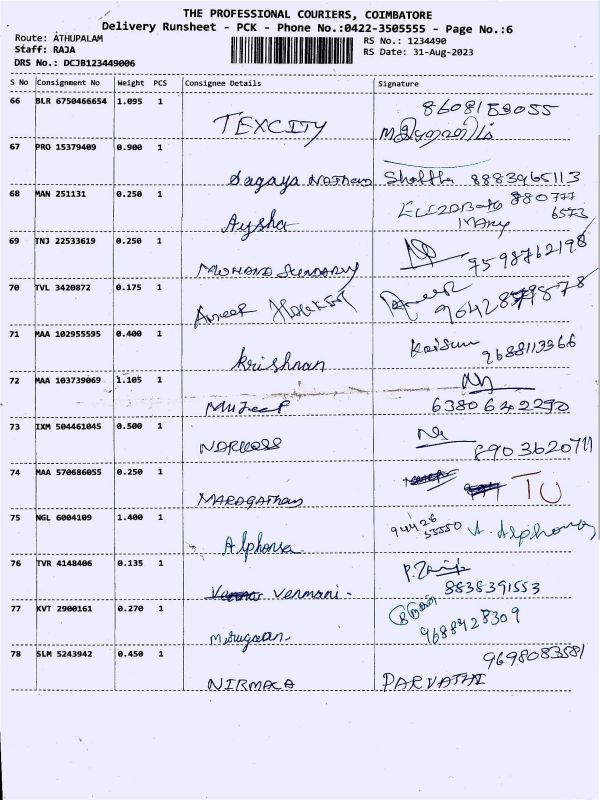 THE PROFESSIONAL COURIERS, COIMBATORE
Delivery Runsheet - PCK - Phone No.:0422-3505555 - Page No.:6
Route: ATHUPALAM RS No.: 1234490
Staff: RAJA RS Date: 31-Aug-2023
DRS No.: DCJB123449006
S No Consignment No Weight PCS Consignee Details Signature
66 BLR 6750466654 1.095 1 TEXCITY 8608153055
67 PRO 15379409 0.900 1 Sagaya Nathan 8883965113
68 MAN 251131 0.250 1 Aysha ELIZABATH MARY 880777 6573
69 TNJ 22533619 0.250 1 7598762198
70 TVL 3420872 0.175 1 Ameer
71 MAA 102955595 0.400 1 Krishnan 9688113966
72 MAA 103739069 1.105 1 Mujeef 6380642290
73 IXM 504461045 0.500 1 8903620711
74 MAA 570686055 0.250 1 MARAGATHAM TU
75 NGL 6004109 1.400 1 Alphonsa 94426 55550 A. Alphonsa
76 TVR 4148406 0.135 1 Venmani. 8838391553
77 KVT 2900161 0.270 1 Murugan. 9688928309
78 SLM 5243942 0.450 1 NIRMALA PARVATHI 9698083581